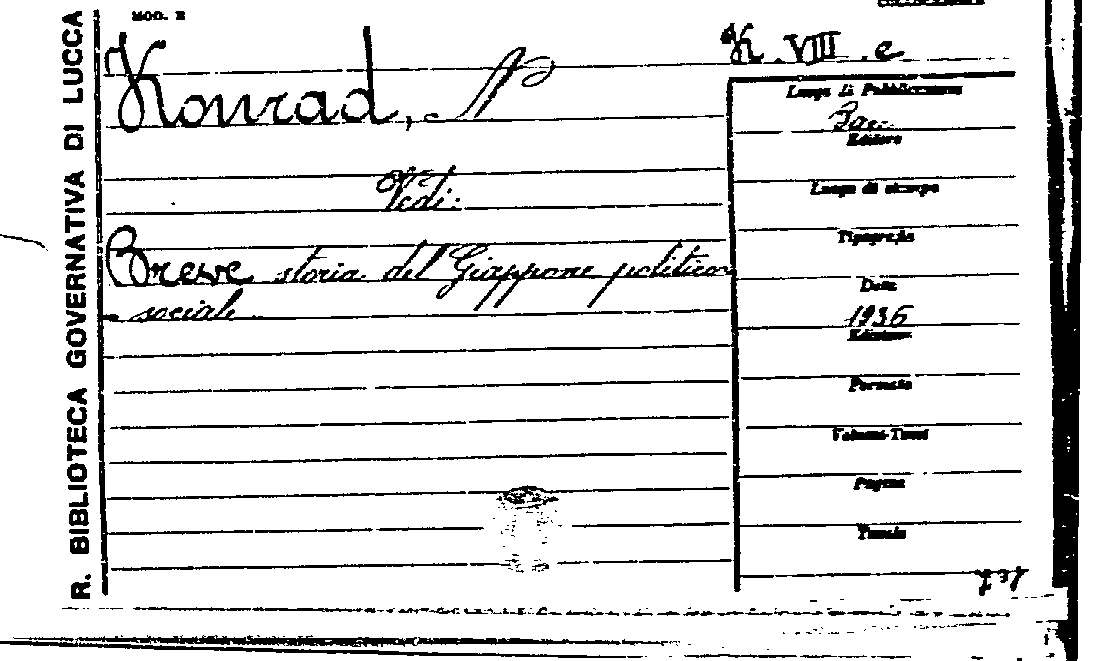 MOD. E
R. BIBLIOTECA GOVERNATIVA DI LUCCA
Konrad, N
K. VIII. e.
Vedi:
Breve storia del Giappone politico
- sociale
Luogo di Pubblicazione
Bari
Editore
Luogo di stampa
Tipografia
Data
1936
Edizione
Formato
Volumi-Tomi
Pagine
Tavole